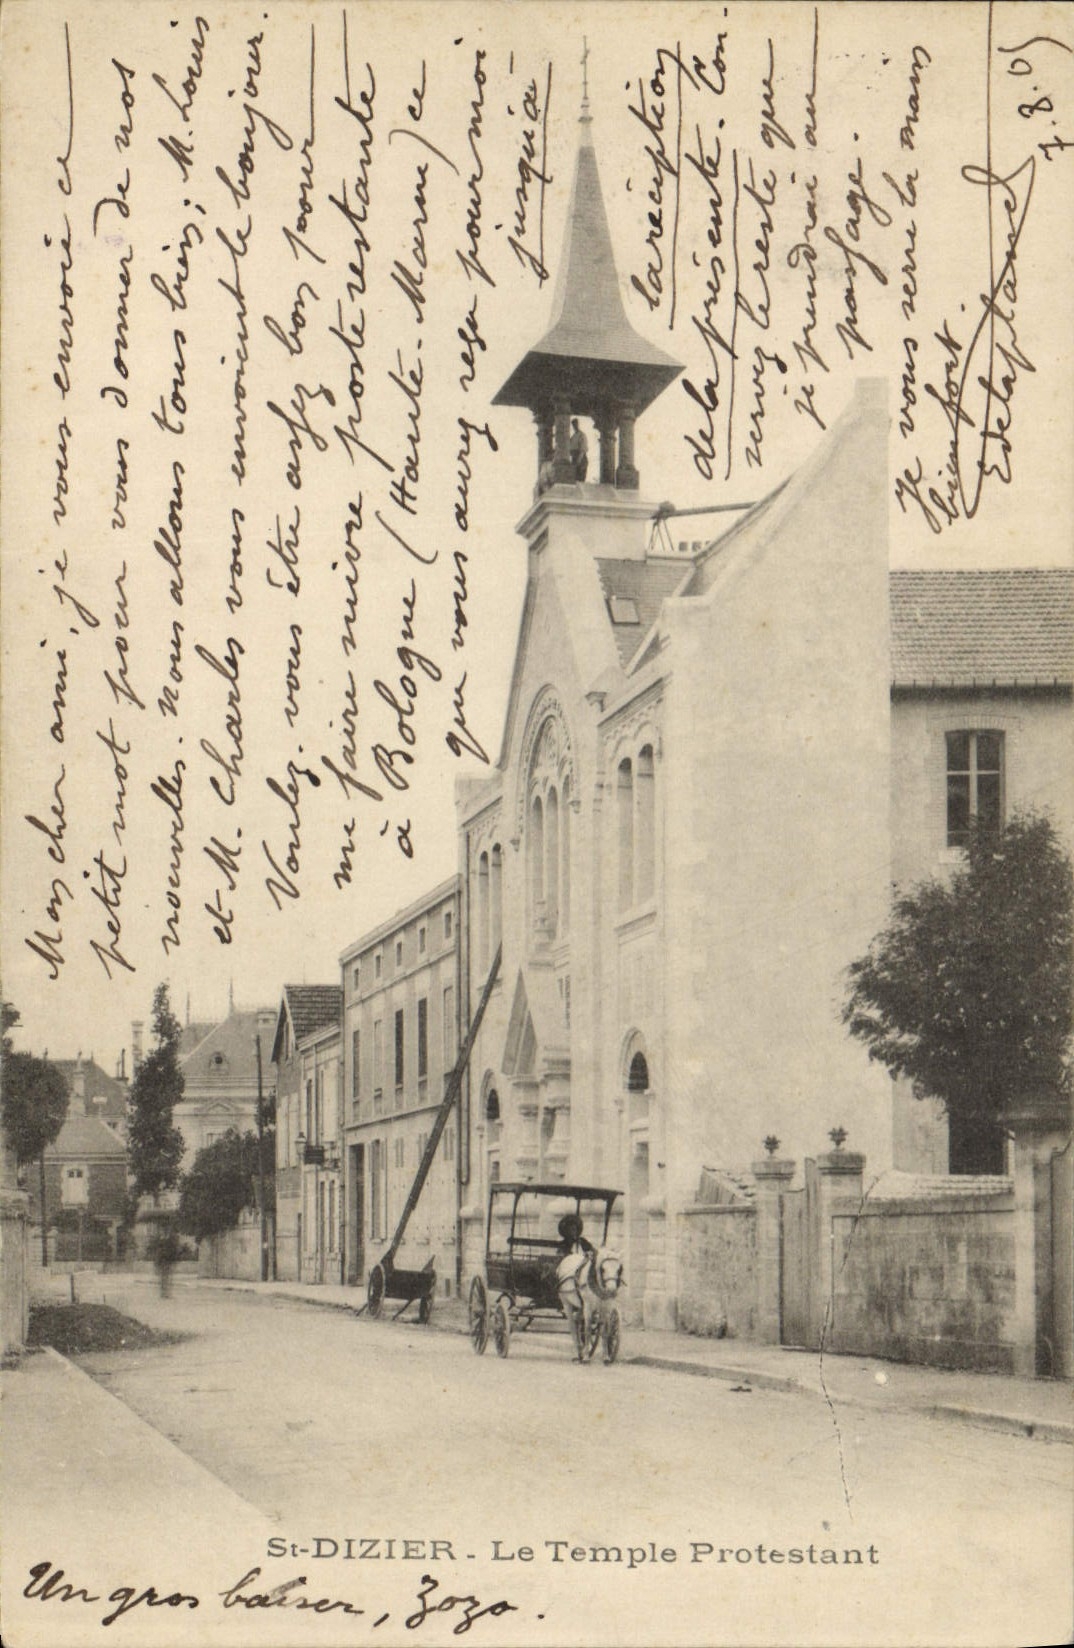 Mon cher ami, je vous envoie ce
petit mot pour vous donner de nos
nouvelles. Nous allons tous bien; M. Louis
et M. Charles vous envoient le bonjour.
Voulez-vous être assez bon pour
me faire suivre poste restante
à Bologne (Haute-Marne) ce
que vous aurez reçu pour moi
jusqu'à
la réception
de la présente. Con-
servez le reste que
je prendrai au
passage.
Je vous serre la main
bien fort.
Edelaplanel
7.8.05
St-DIZIER - Le Temple Protestant
Un gros baiser, Zozo.